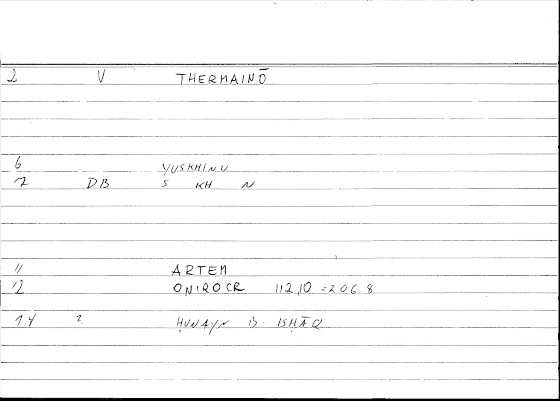 2 V THERMAINŌ
6 YUSKHINU
7 DB S KH N
11 ARTEM
12 ONIROCR 112,10 = 206.8
14 2 ḤUNAYN B. ISḤĀQ